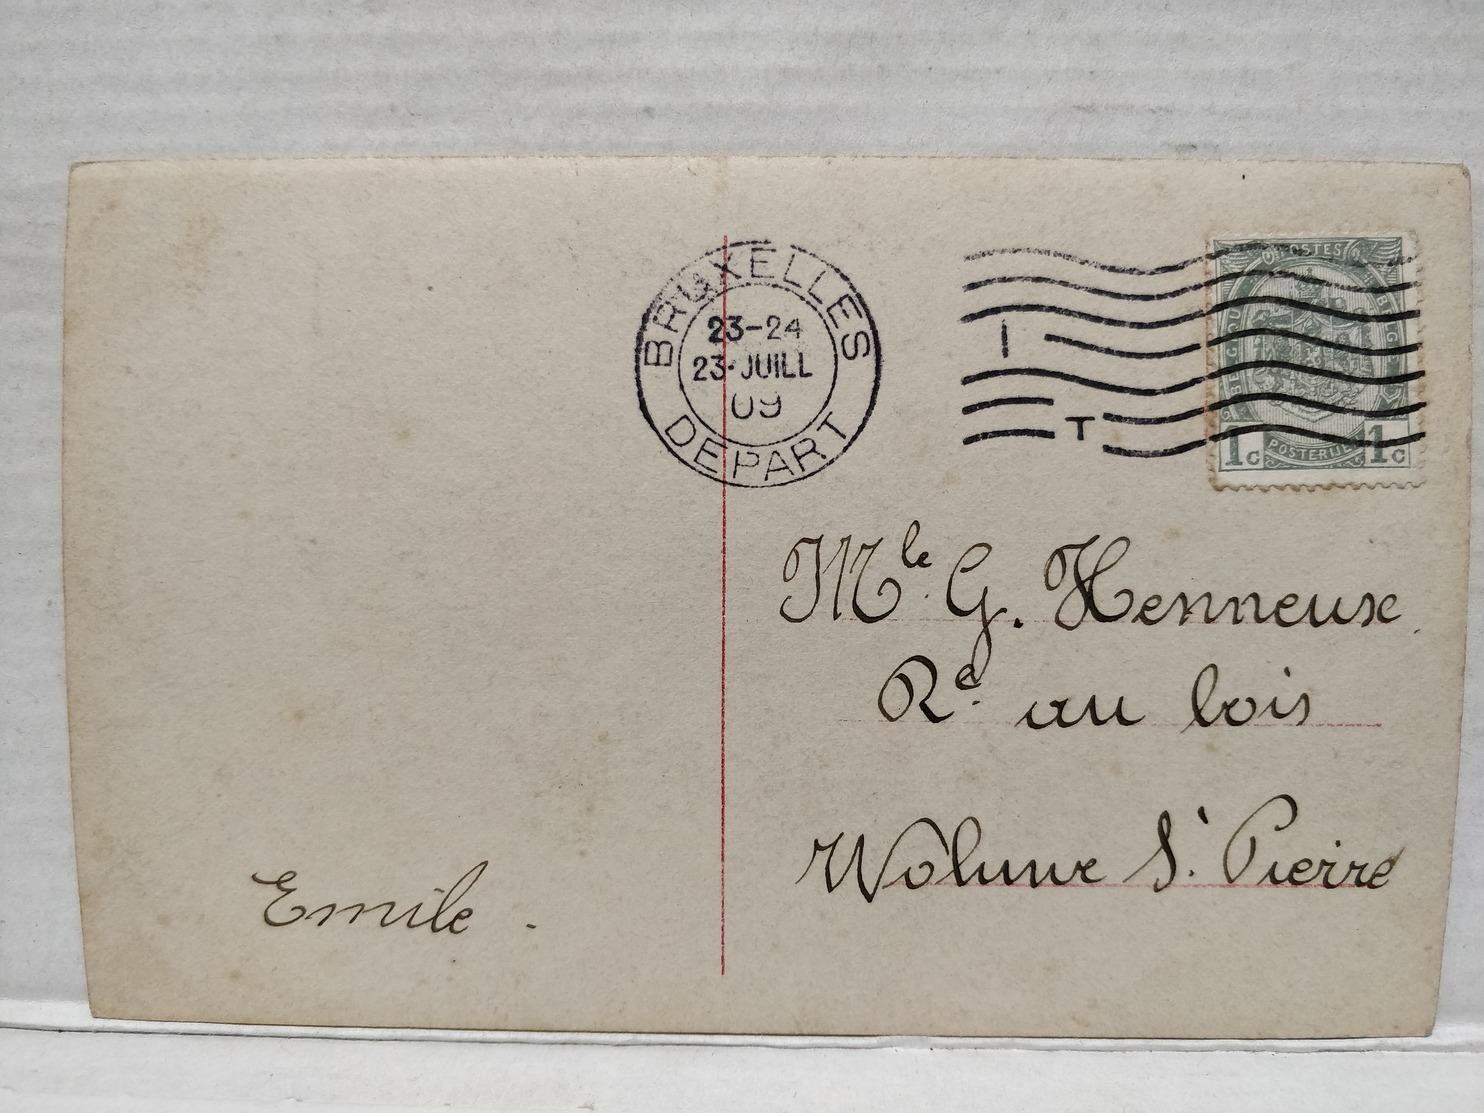 BRUXELLES
23-24
23·JUILL
09
DEPART
I
T
POSTES
BELGIQUE
BELGIË
1c POSTERIJEN 1c
Mle. G. Henneuse
Re. au bois
Woluwe St. Pierre
Emile.